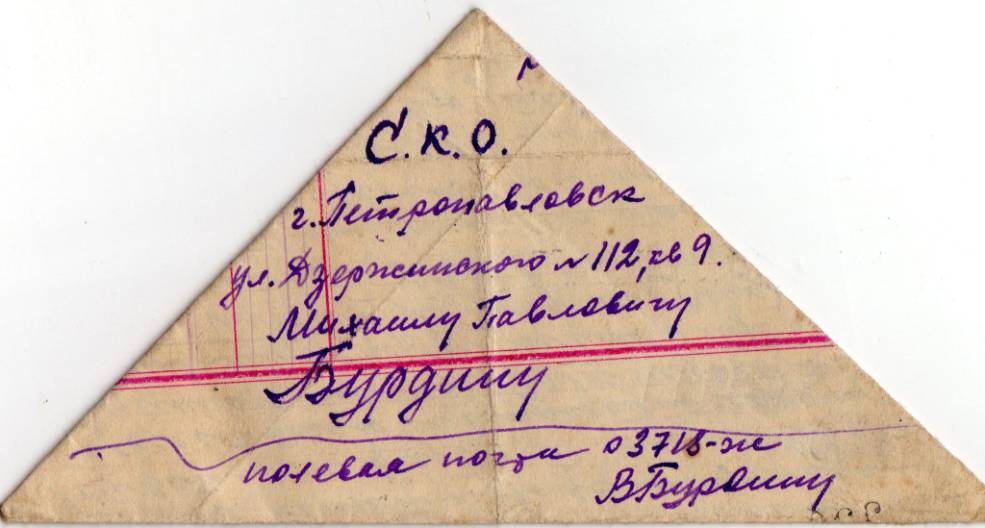 С.К.О.
г. Петропавловск
ул. Дзержинского № 112, кв 9.
Михаилу Павловичу
Бурдину
полевая почта 03718-ж
В Бурдину